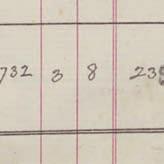 732 3 8 23